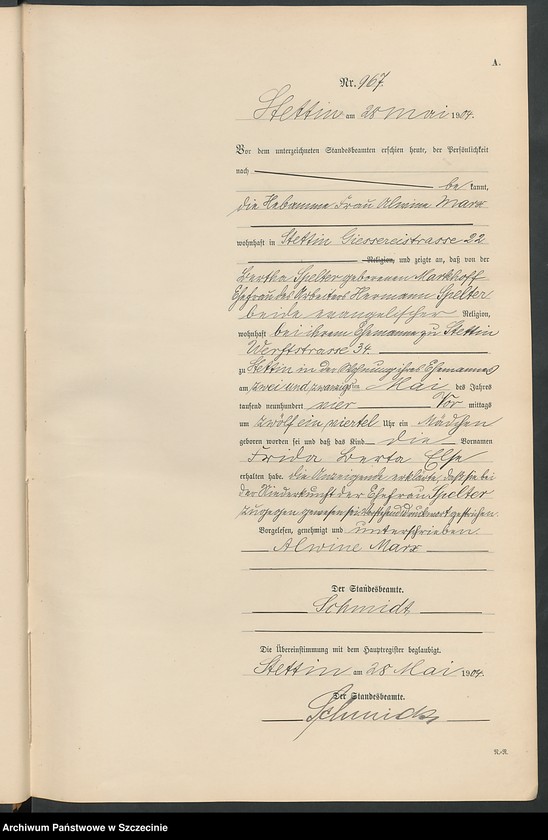 A.
Nr. 967.
Stettin am 28 Mai 1904.
Vor dem unterzeichneten Standesbeamten erschien heute, der Persönlichkeit
nach
be kannt,
die Hebamme Frau Alwine Marx
wohnhaft in Stettin Giessereistrasse 22
Religion, und zeigte an, daß von der
Bertha Spelter geborenen Markhoff
Ehefrau des Arbeiters Hermann Spelter
beide evangelischer Religion,
wohnhaft bei ihrem Ehemanne zu Stettin
Werftstrasse 34.
zu Stettin in der Wohnung ihres Ehemannes
am zwei und zwanzigsten Mai des Jahres
tausend neunhundert vier Vor mittags
um zwölf ein viertel Uhr ein Mädchen
geboren worden sei und daß das Kind die Vornamen
Frida Berta Else
erhalten habe. Die Anzeigende erklärte, daß sie bei
der Niederkunft der Ehefrau Spelter
zugegen gewesen sei. Vorstehend Druckwort gestrichen.
Vorgelesen, genehmigt und unterschrieben.
Alwine Marx
Der Standesbeamte.
Schmidt
Die Übereinstimmung mit dem Hauptregister beglaubigt.
Stettin am 28 Mai 1904.
Der Standesbeamte.
Schmidt
Archiwum Państwowe w Szczecinie